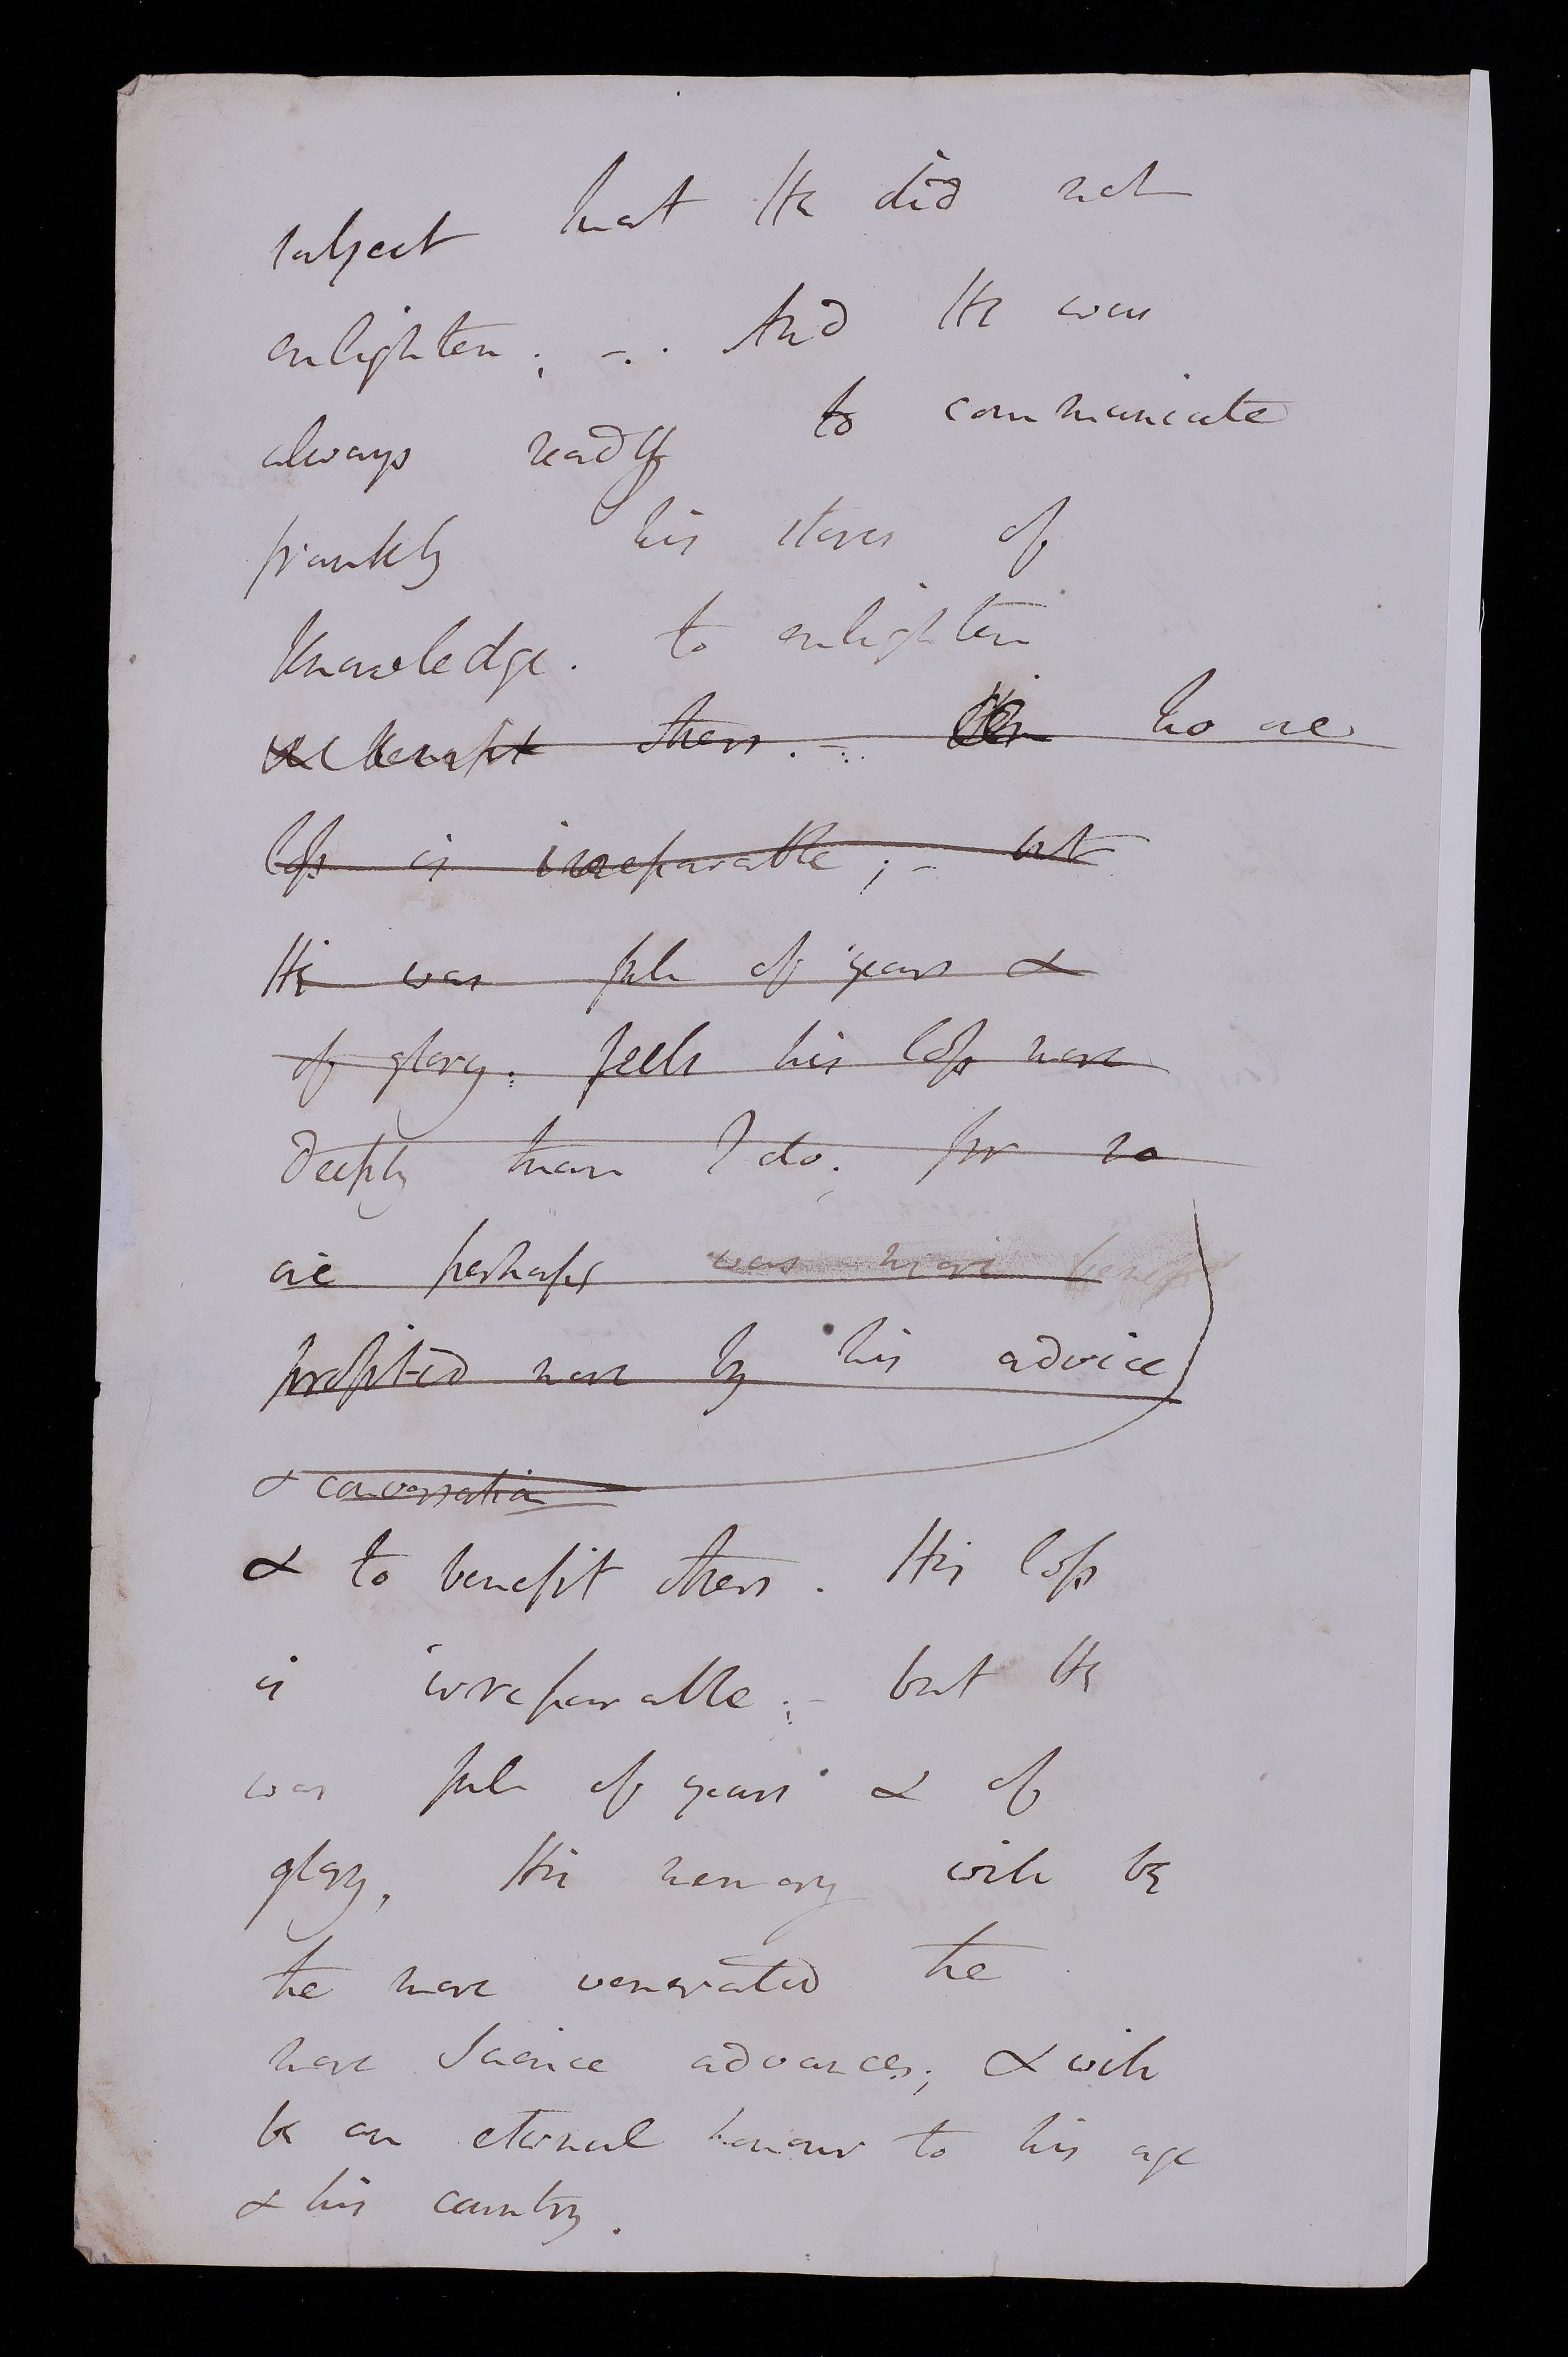 subject that He did not
enlighten; -. . And He was
always ready to communicate
frankly his stores of
Knowledge. to enlighten
& benefit others. - no one
loss is irreparable; - but
He was full of years &
of glory. feels his loss more
deeply than I do. for no
one perhaps was more benefit
profited more by his advice
& conversation
& to benefit others. His loss
is irreparable; - but He
was full of years & of
glory, His memory will be
the more venerated the
more Science advances; & will
be an eternal honour to his age
& his country.